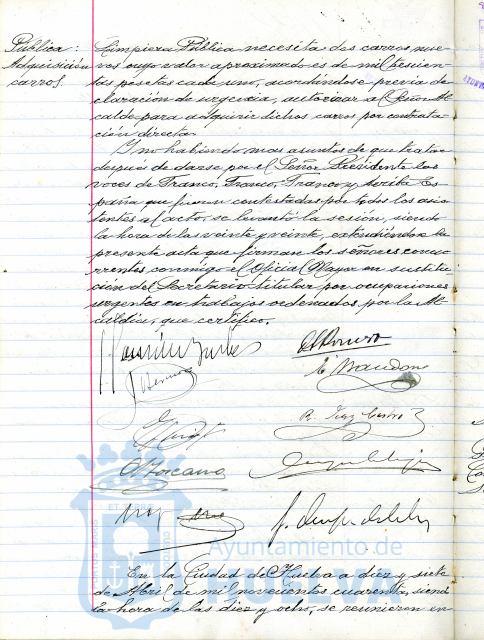 Pública:
Adquisición
carros.
Limpieza Pública necesita dos carros nue-
vos cuyo valor aproximado es de mil tescien-
tas pesetas cada uno, acordándose previa de-
claración de urgencia, autorizar al Señor Al-
calde para adquirir dichos carros por contrata-
ción directa.
Y no habiendo mas asuntos de que tratar
después de darse por el Señor Presidente las
voces de Franco, Franco, Franco y Arriba Es-
paña que fueron contestadas por todos los asis-
tentes al acto, se levantó la sesión, siendo
la hora de las veinte y veinte, extendiéndose la
presente acta que firman los señores concu-
rrentes conmigo el Oficial Mayor en sustitu-
ción del Secretario titular por ocupaciones
urgentes en trabajos ordenados por la Al-
caldía, que certifico.
Ayuntamiento de
HUELVA
En la Ciudad de Huelva a diez y siete
de Abril de mil novecientos cuarenta, siendo
la hora de las diez y ocho, se reunieron en